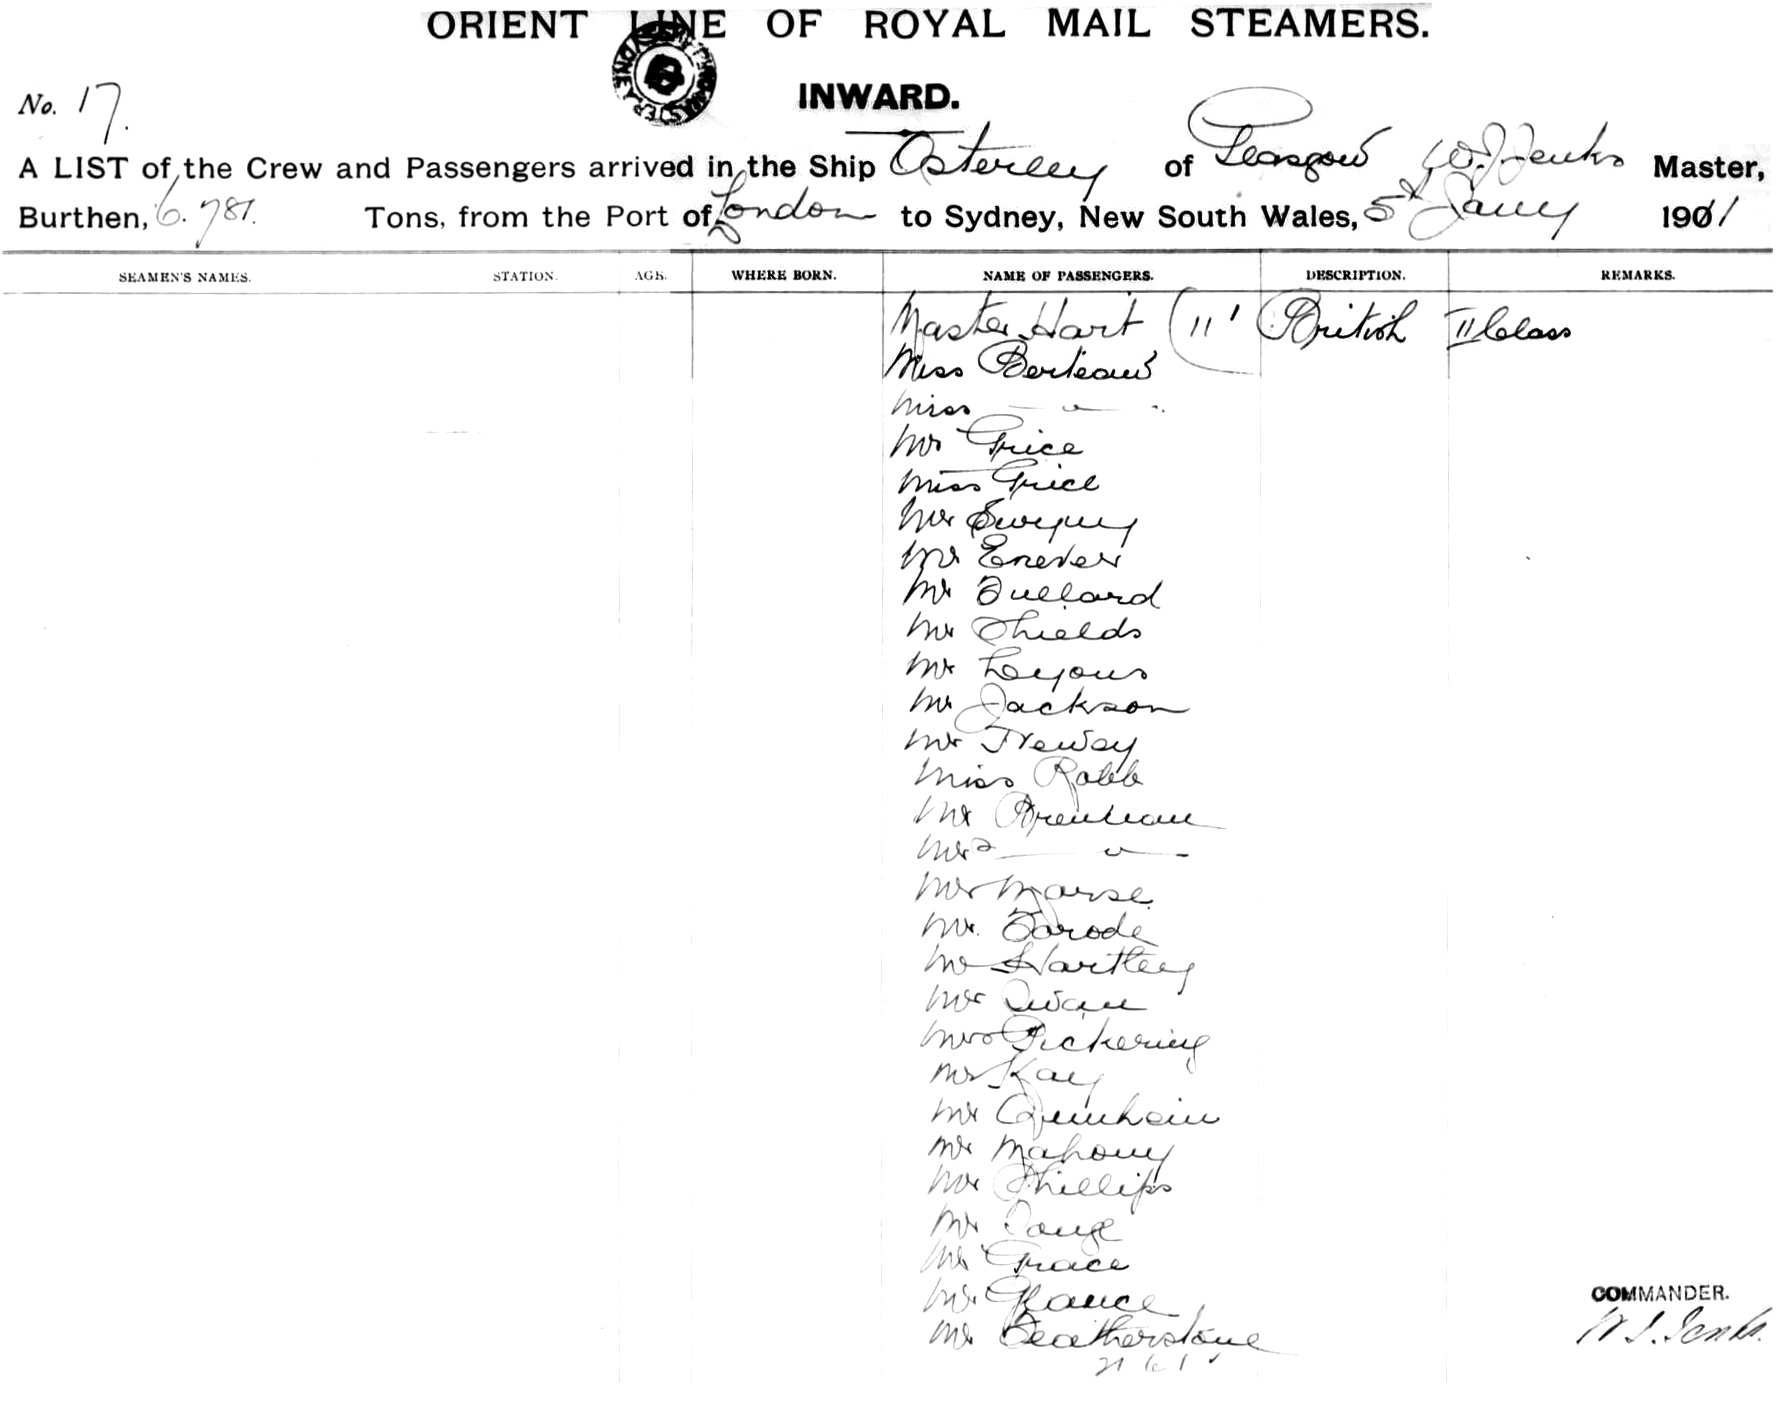 ORIENT LINE OF ROYAL MAIL STEAMERS.
No. 17.
INWARD.
A LIST of the Crew and Passengers arrived in the Ship Osterley of Glasgow W. J. Jenks Master,
Burthen, 6.781. Tons, from the Port of London to Sydney, New South Wales, 5th Jany 1911
SEAMEN'S NAMES. STATION. AGE. WHERE BORN. NAME OF PASSENGERS. DESCRIPTION. REMARKS.
Master Hart (11) British II Class
Miss
Miss — " —
Mr Grice
Miss Grice
Mr
Mr Enever
Mr Bullard
Mr Shields
Mr Leyous
Mr Jackson
Mr Treway
Miss Robb
Mr
Mrs — " —
Mr Marse
Mr Barode
Mr Hartley
Mr Swan
Mrs Pickering
Mr Kay
Mr
Mr Mahony
Mr Phillips
Mr
Mr Grace
Mr Glance
Mr Featherstone
COMMANDER.
W. J. Jenks.